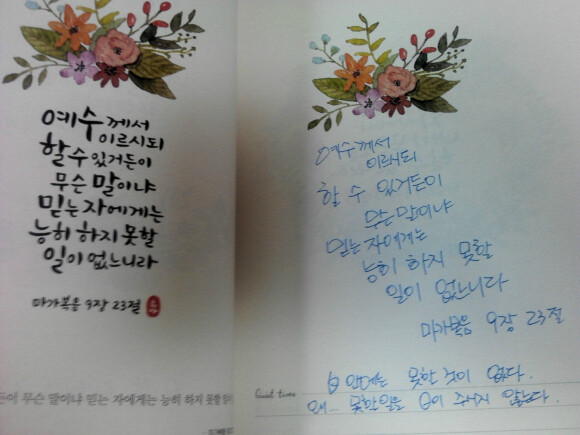 예수께서
이르시되
할 수 있거든이
무슨 말이냐
믿는 자에게는
능히 하지 못할
일이 없느니라
마가복음 9장 23절
든이 무슨 말이냐 믿는 자에게는 능히 하지 못할
예수께서
이르시되
할 수 있거든이
무슨 말이냐
믿는 자에게는
능히 하지 못할
일이 없느니라
마가복음 9장 23절
Quiet time
안에는 못한 것이 없다.
왜... 못한일을 이 주시지 않는다.